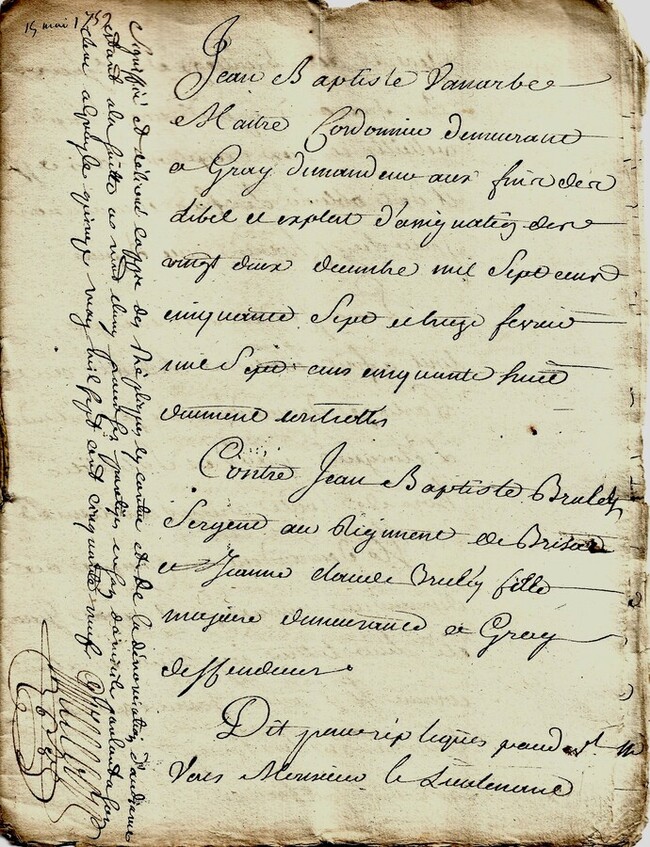 15 mai 1759
Jean Baptiste Vanarbe
Maitre Cordonnier demeurant
a Gray demandeur aux fins des
libel et exploit d'assignation des
vingt deux decembre mil Sept cent
cinquante Sept et treize fevrier
mil Sept cens cinquante huit
duement controllés
Contre Jean Baptiste Bruley
Sergent au Regiment de
et Jeanne claude Bruley fille
majeure demeurante a Gray
deffendeurs
Dit pour répliques pardevt
Vous Monsieur le Lieutenant
Signiffié et délivré coppie des Répliques cy contre et de la dénonciation d'audiance
estant a la suitte
quinze may mil sept cent cinquante neuf